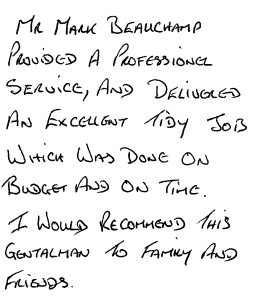 Mr Mark Beauchamp
Provided A Professional
Service, And Delivered
An Excellent Tidy Job
Which Was Done On
Budget And On Time.
I Would Recommend This
Gentalman To Family And
Friends.